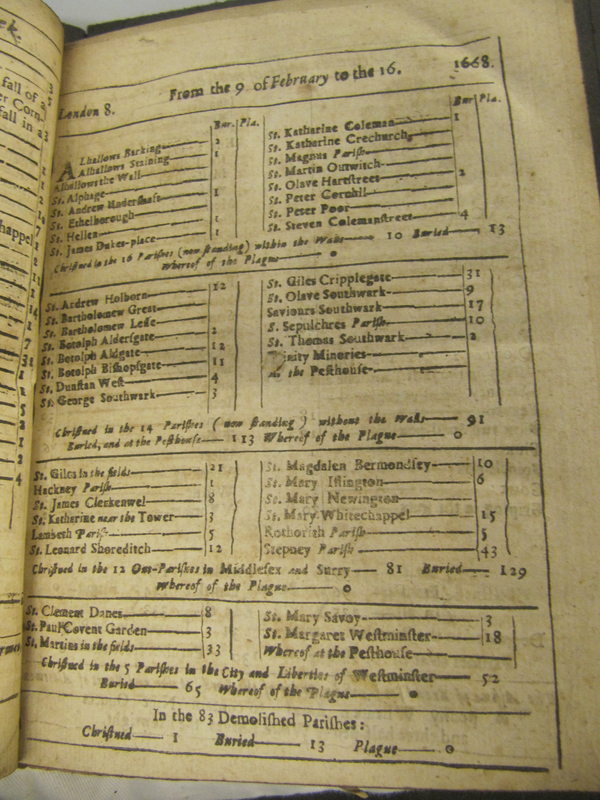 ek.
fall of a
er Corn.
fall in a
happel
London 8. From the 9 of February to the 16. 1668.
Bur. Pla.
Alhallows Barking 2
Alhallows Staining
Alhallows the Wall 1
St. Alphage
St. Andrew Undershaft 1
St. Ethelborough
St. Hellen 1
St. James Dukes-place 1
Bur Pla.
St. Katharine Coleman 1
St. Katharine Creechurch
St. Magnus Parish
St. Martin Outwitch
St. Olave Hartstreet 2
St. Peter Cornhil
St. Peter Poor
St. Steven Colemanstreet 4
Christned in the 16 Parishes (now standing) within the Walls 10 Buried 13
Whereof of the Plague 0
St. Andrew Holborn 12
St. Bartholomew Great
St. Bartholomew Lesse
St. Botolph Aldersgate 2
St. Botolph Aldgate 12
St. Botolph Bishopsgate 11
St. Dunstan West 4
St. George Southwark 3
St. Giles Cripplegate 31
St. Olave Southwark 9
Saviours Southwark 17
S. Sepulchres Parish 10
St. Thomas Southwark 2
Trinity Minories
At the Pesthouse
Christned in the 14 Parishes (now standing) without the Walls 91
Buried, and at the Pesthouse 113 Whereof of the Plague 0
St. Giles in the fields 21
Hackney Parish 1
St. James Clerkenwel 8
St. Katharine near the Tower 3
Lambeth Parish 5
St. Leonard Shoreditch 12
St. Magdalen Bermondsey 10
St. Mary Islington 6
St. Mary Newington
St. Mary Whitechappel 15
Rothorith Parish 5
Stepney Parish 43
Christned in the 12 Out-Parishes in Middlesex and Surry 81 Buried 129
Whereof of the Plague 0
St. Clement Danes 8
St. Paul Covent Garden 3
St. Martins in the fields 33
St. Mary Savoy 3
St. Margaret Westminster 18
Whereof at the Pesthouse
Christned in the 5 Parishes in the City and Liberties of Westminster 52
Buried 65 Whereof of the Plague 0
In the 83 Demolished Parishes:
Christned 1 Buried 13 Plague 0